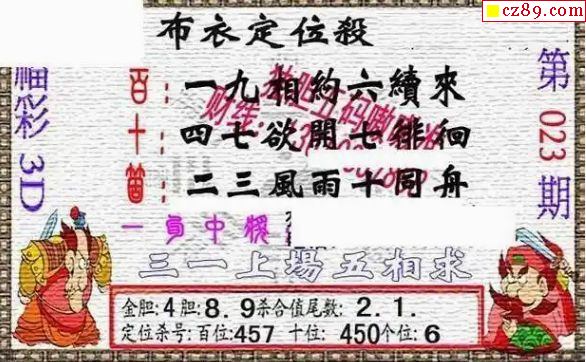 cz89.com
布衣定位殺
福彩 3D
第 023 期
百：一九相約六續來
十：四七欲開七徘徊
二三風雨十同舟
三一上場五相求
金胆: 4 胆: 8. 9 杀合值尾数: 2. 1.
定位杀号: 百位457 十位: 450 个位: 6